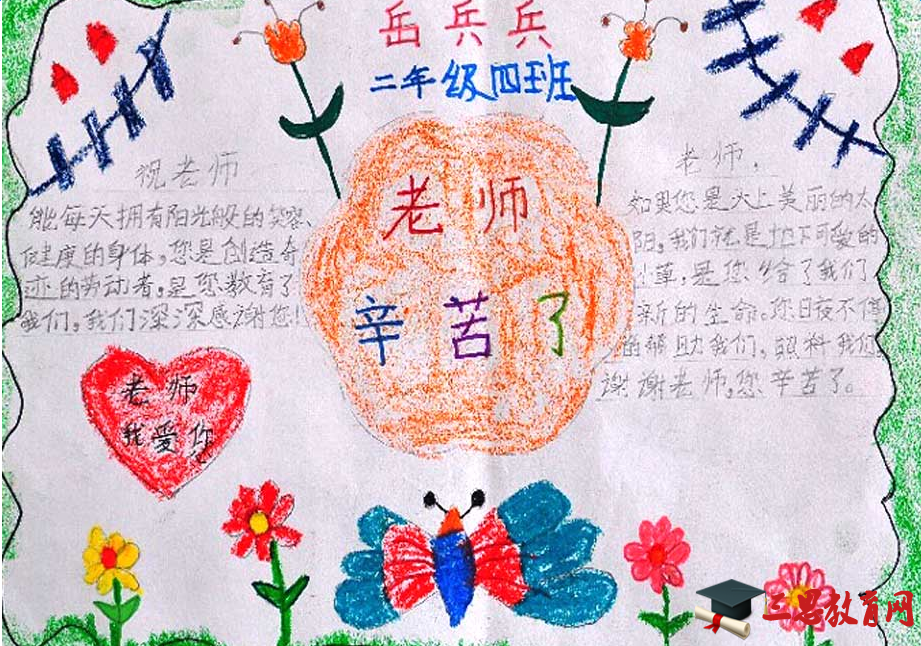 岳兵兵
二年级四班
祝老师
能每天拥有阳光般的笑容,
健康的身体,您是创造奇
迹的劳动者,是您教育了
我们,我们深深感谢您!
老师
辛苦了
老师.
如果您是天上美丽的太
阳,我们就是地下可爱的
小草,是您给了我们
新的生命。您日夜不停
的帮助我们,照料我们,
谢谢老师,您辛苦了。
老师
我爱你
三思教育网